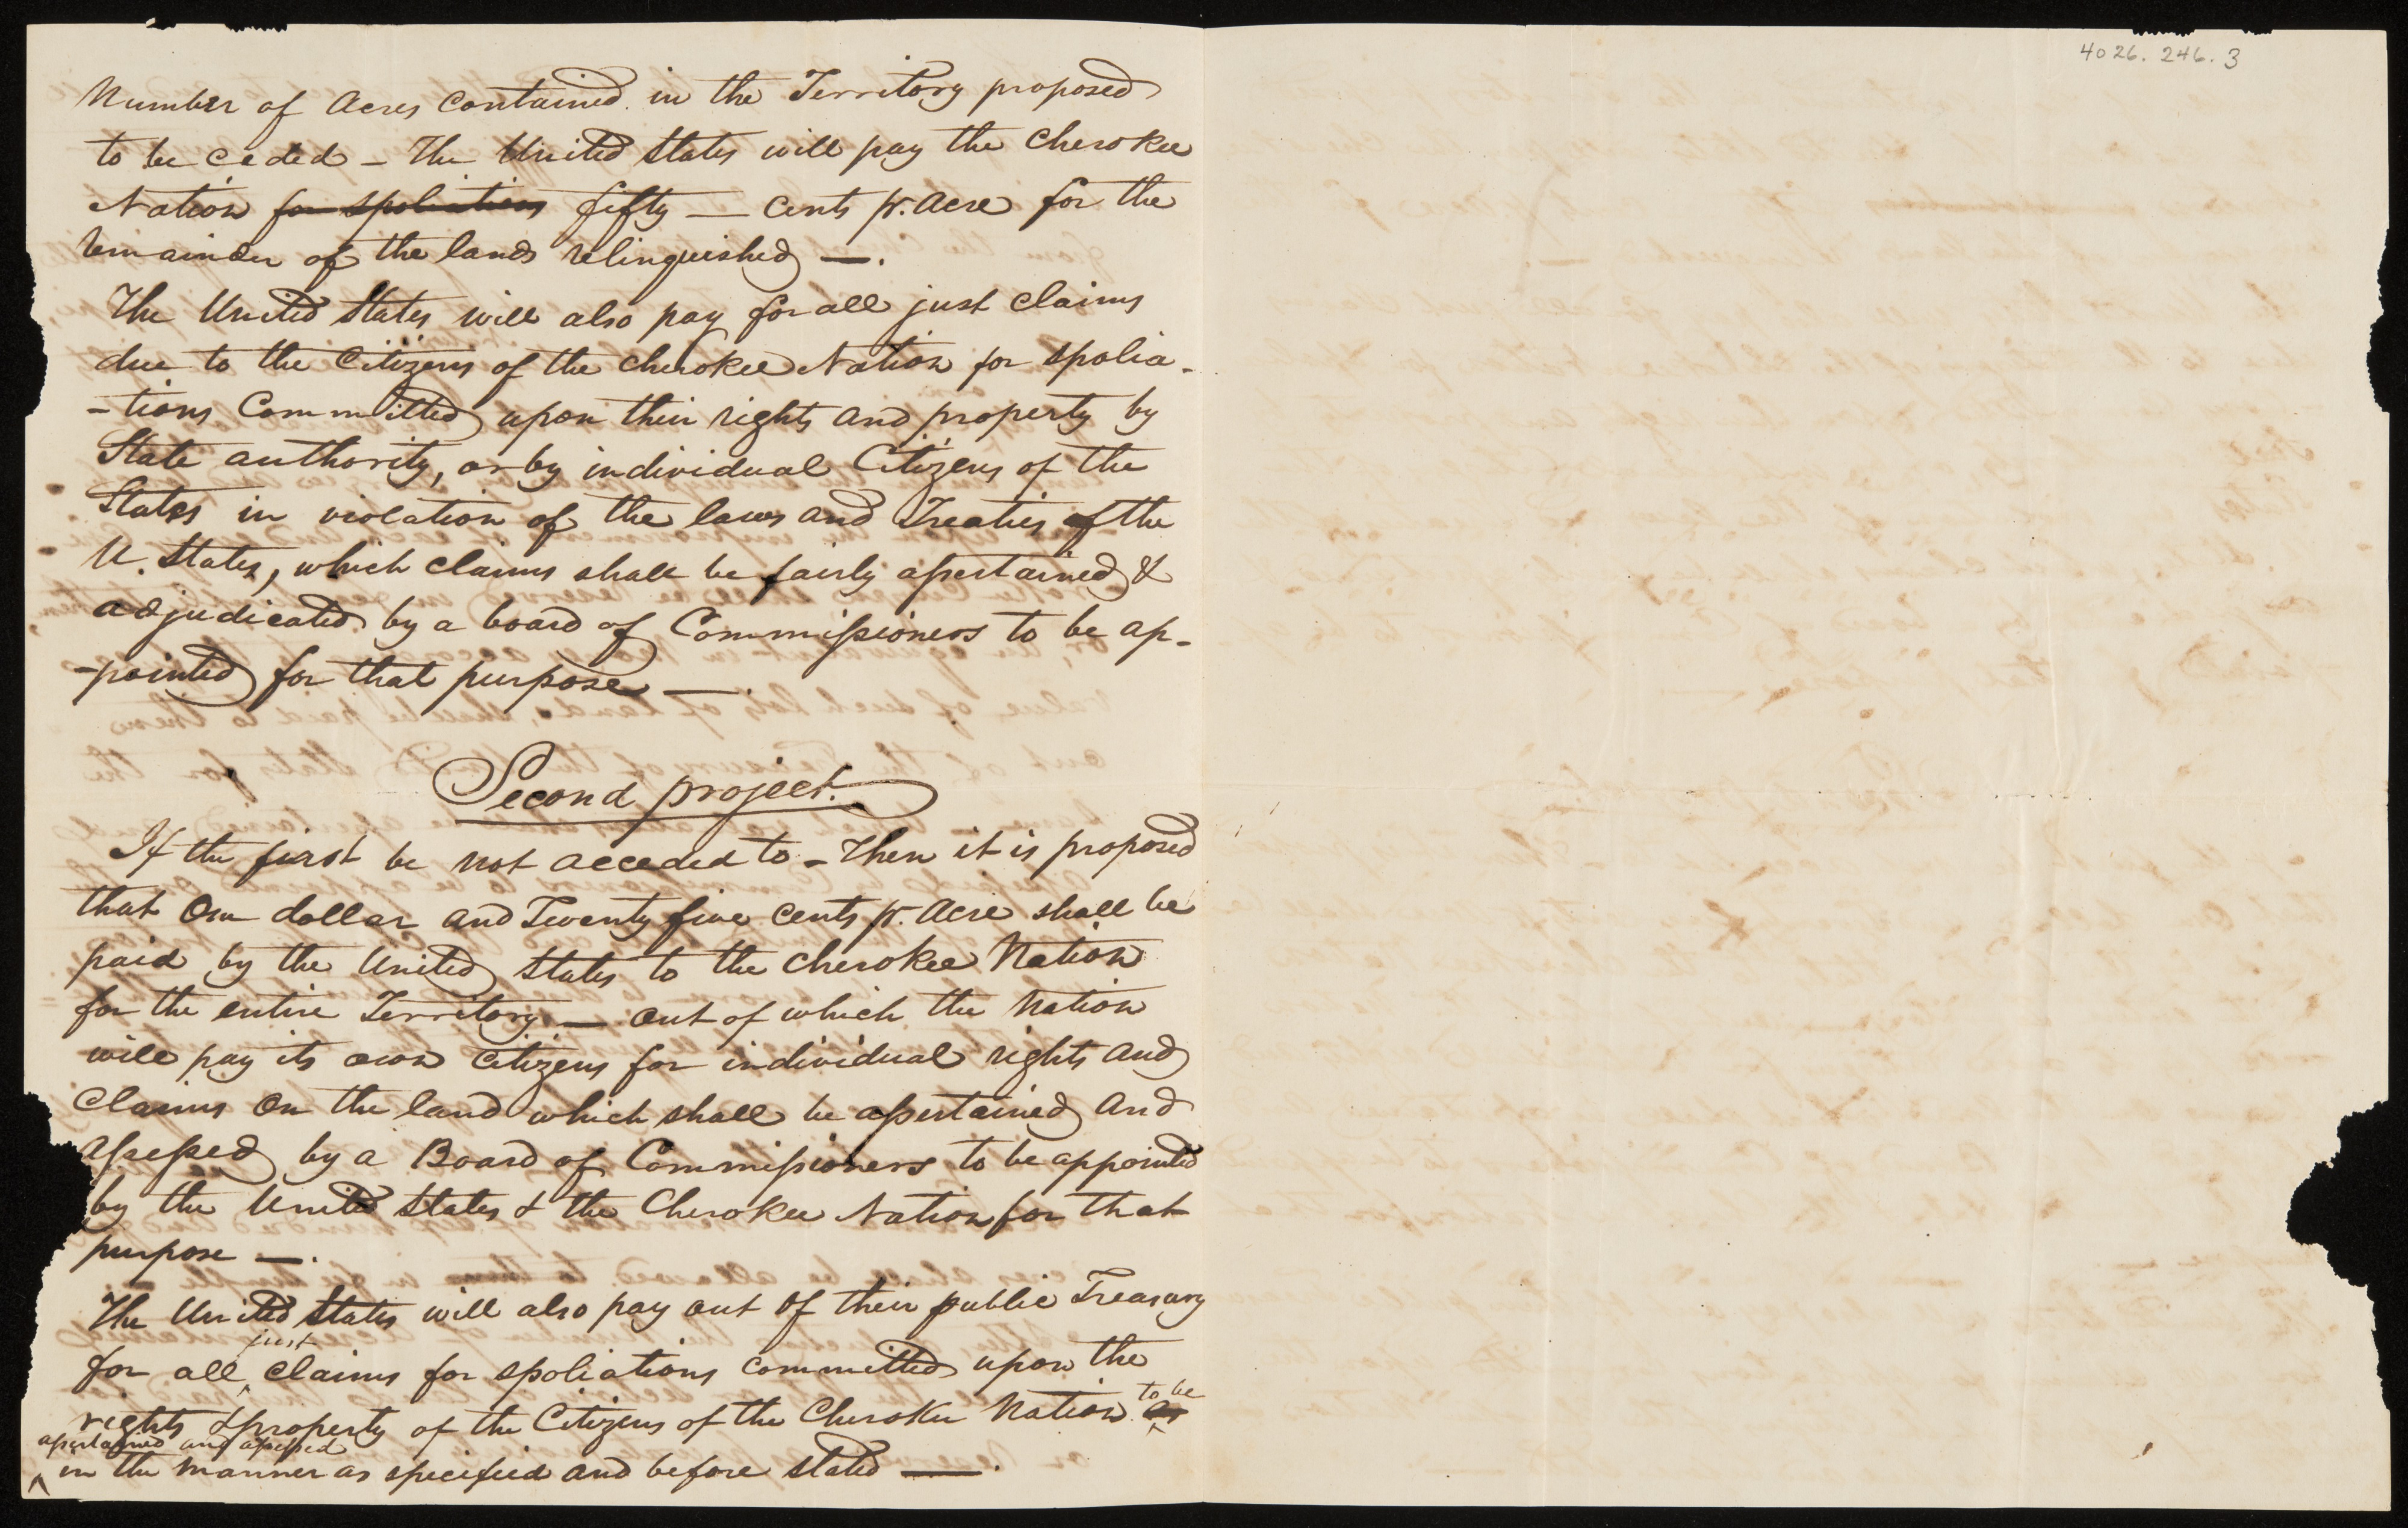 Number of Acres Contained in the Territory proposed
to be ceded – The United States will pay the Cherokee
Nation for spoliations fifty — cents pr. Acre for the
remainder of the lands relinquished —.
The United States will also pay for all just claims
due to the Citizens of the Cherokee Nation for spolia-
-tions Committed upon their rights and property by
State authority, or by individual Citizens of the
States in violation of the laws and Treaties of the
U. States, which claims shall be fairly assertained &
adjudicated by a board of Commissioners to be ap-
-pointed for that purpose —.
Second project.
If the first be not acceded to – Then it is proposed
that One dollar and Twenty five cents pr. Acre shall be
paid by the United States to the Cherokee Nation
for the entire Territory — out of which the Nation
will pay its own Citizens for individual rights and
Claims on the land which shall be assertained and
assessed by a Board of Commissioners to be appointed
by the United States & the Cherokee Nation for that
purpose —.
The United States will also pay out of their public Treasury
just
for all ‸ claims for spoliations committed upon the
to be
rights & property of the Citizens of the Cherokee Nation as ‸
assertained and assessed
‸ in the manner as specified and before stated —.
4026. 246. 3